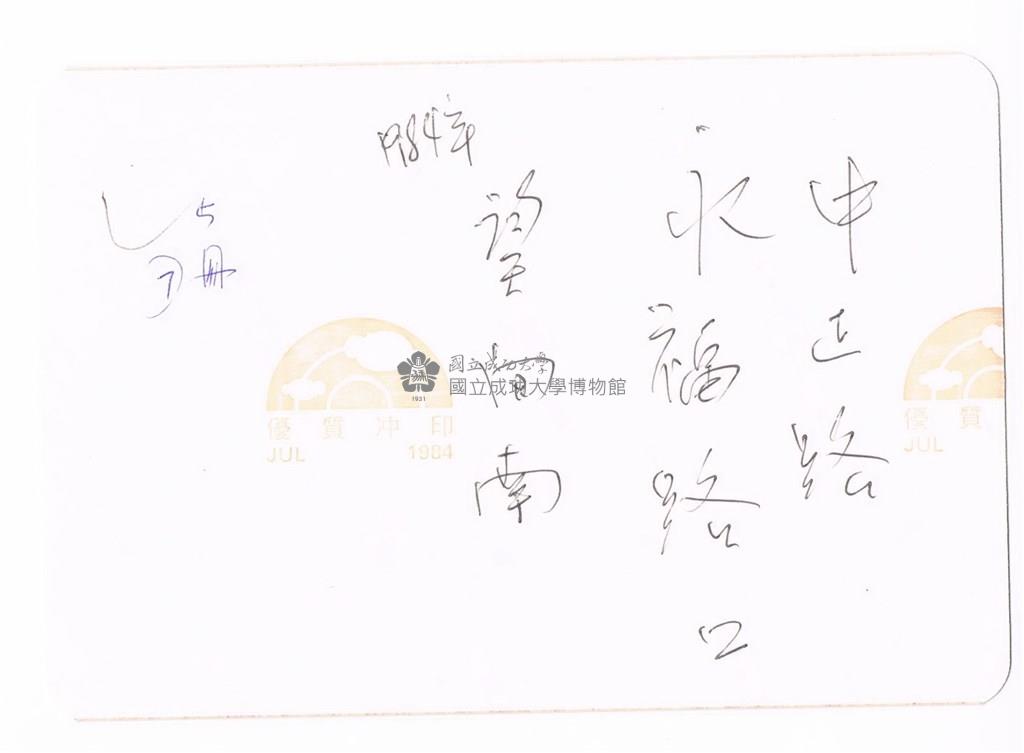 中正路
永福路口
望西南
1984年
占
冊
國立成功大學
國立成功大學博物館
1931
優質沖印
JUL 1984
優質
JUL